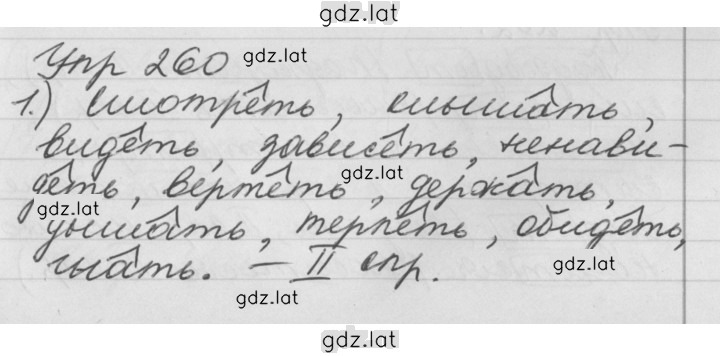 gdz.lat
Упр 260
gdz.lat
1.) Смотреть, слышать,
видеть, зависеть, ненави-
gdz.lat
деть, вертеть, держать,
gdz.lat
дышать, терпеть, обидеть,
гнать. – II спр.
gdz.lat
gdz.lat
gdz.lat